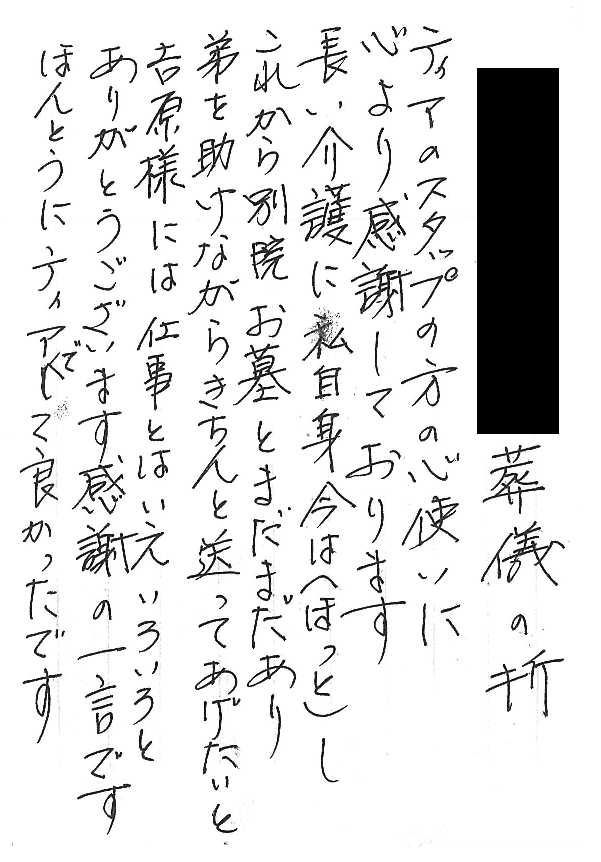 葬儀の折
ティアのスタップの方の心使いに
心より感謝しております
長い介護に私自身今は(ほっと)し
これから別院お墓とまだまだあり
弟を助けながらきちんと送ってあげたいと
吉原様には仕事とはいえいろいろと
ありがとうございます感謝の一言です
ほんとうにティアでして良かったです